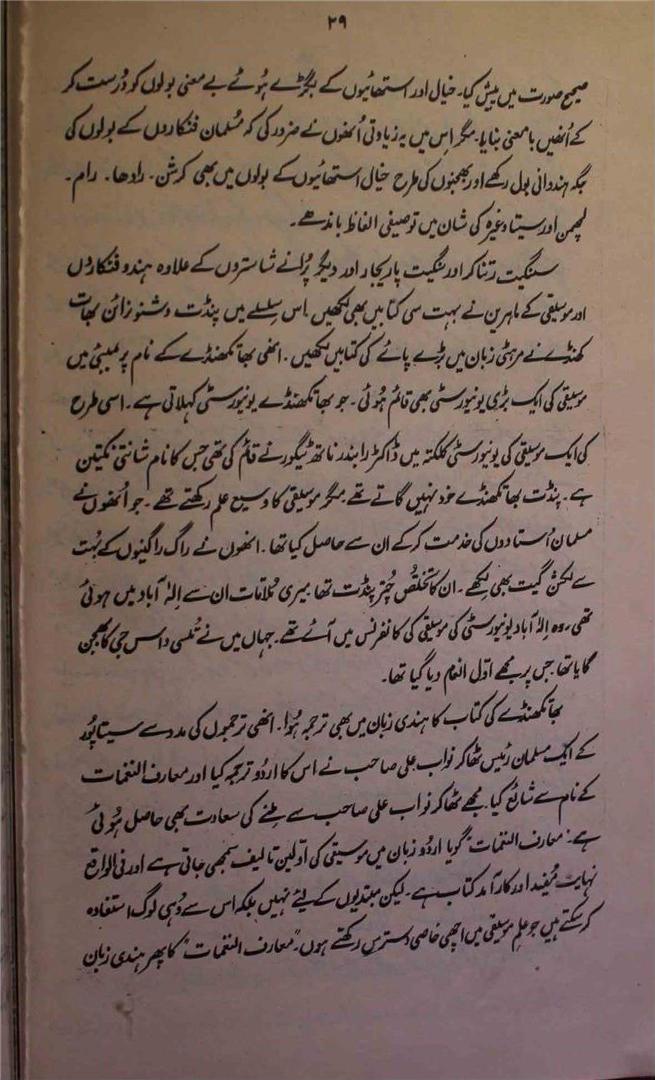 ۲۹
صحیح صورت میں پیش کیا۔ خیال اور استھائیوں کے بگڑے ہُوئے بے معنی بولوں کو دُرست کر
کے اُنھیں با معنی بنایا۔ مگر اس میں یہ زیادتی اُنھوں نے ضرور کی کہ مُسلمان فنکاروں کے بولوں کی
جگہ ہندوانی بول رکھے اور بھجنوں کی طرح خیال استھائیوں کے بولوں میں بھی کرشن۔ رادھا۔ رام۔
لچھمن اور سیتا وغیرہ کی شان میں توصیفی الفاظ باندھے۔
سنگیت رتناکر اور سنگیت پاریجار اور دیگر پُرانے شاستروں کے علاوہ ہندو فنکاروں
اور موسیقی کے ماہرین نے بہت سی کتابیں بھی لکھیں۔ اس سلسلے میں پنڈت وشنو نرائن بھات
کھنڈے نے مرہٹی زبان میں بڑے پائے کی کتابیں لکھیں۔ انھی بھاتکھنڈے کے نام پر بمبئی میں
موسیقی کی ایک بڑی یونیورسٹی بھی قائم ہُوئی۔ جو بھاتکھنڈے یونیورسٹی کہلاتی ہے۔ اسی طرح
کی ایک موسیقی کی یونیورسٹی کلکتہ میں ڈاکٹر رابندر ناتھ ٹیگور نے قائم کی تھی جس کا نام شانتی نکیتن
ہے۔ پنڈت بھاتکھنڈے خود نہیں گاتے تھے مگر موسیقی کا وسیع علم رکھتے تھے۔ جو اُنھوں نے
مسلمان اُستادوں کی خدمت کر کے ان سے حاصل کیا تھا۔ انھوں نے راگ راگنیوں کے بہُت
سے لکشن گیت بھی لکھے۔ ان کا تخلّص چُتر پنڈت تھا۔ میری مُلاقات ان سے اِلہٰ آباد میں ہوئی
تھی۔ وہ اِلہٰ آباد یونیورسٹی کی موسیقی کی کانفرنس میں آئے تھے۔ جہاں میں نے تُلسی داس جی کا بھجن
گایا تھا جس پر مجھے اوّل انعام دیا گیا تھا۔
بھاتکھنڈے کی کتاب کا ہندی زبان میں بھی ترجمہ ہُوا۔ انھی ترجموں کی مدد سے سیتاپُور
کے ایک مسلمان رئیس ٹھاکر نواب علی صاحب نے اس کا اردو ترجمہ کیا اور معارف النغمات
کے نام سے شائع کیا۔ مجھے ٹھاکر نواب علی صاحب سے مِلنے کی سعادت بھی حاصل ہُوئی
ہے۔ "معارف النغمات" گویا اردُو زبان میں موسیقی کی اوّلین تالیف سمجھی جاتی ہے اور فی الواقع
نہایت مُفید اور کارآمد کتاب ہے۔ لیکن مبتدیوں کے لیئے نہیں بلکہ اس سے وُہی لوگ استفادہ
کر سکتے ہیں جو علمِ موسیقی میں اچھی خاصی دسترس رکھتے ہوں۔ "معارف النغمات" کا پھر ہندی زبان